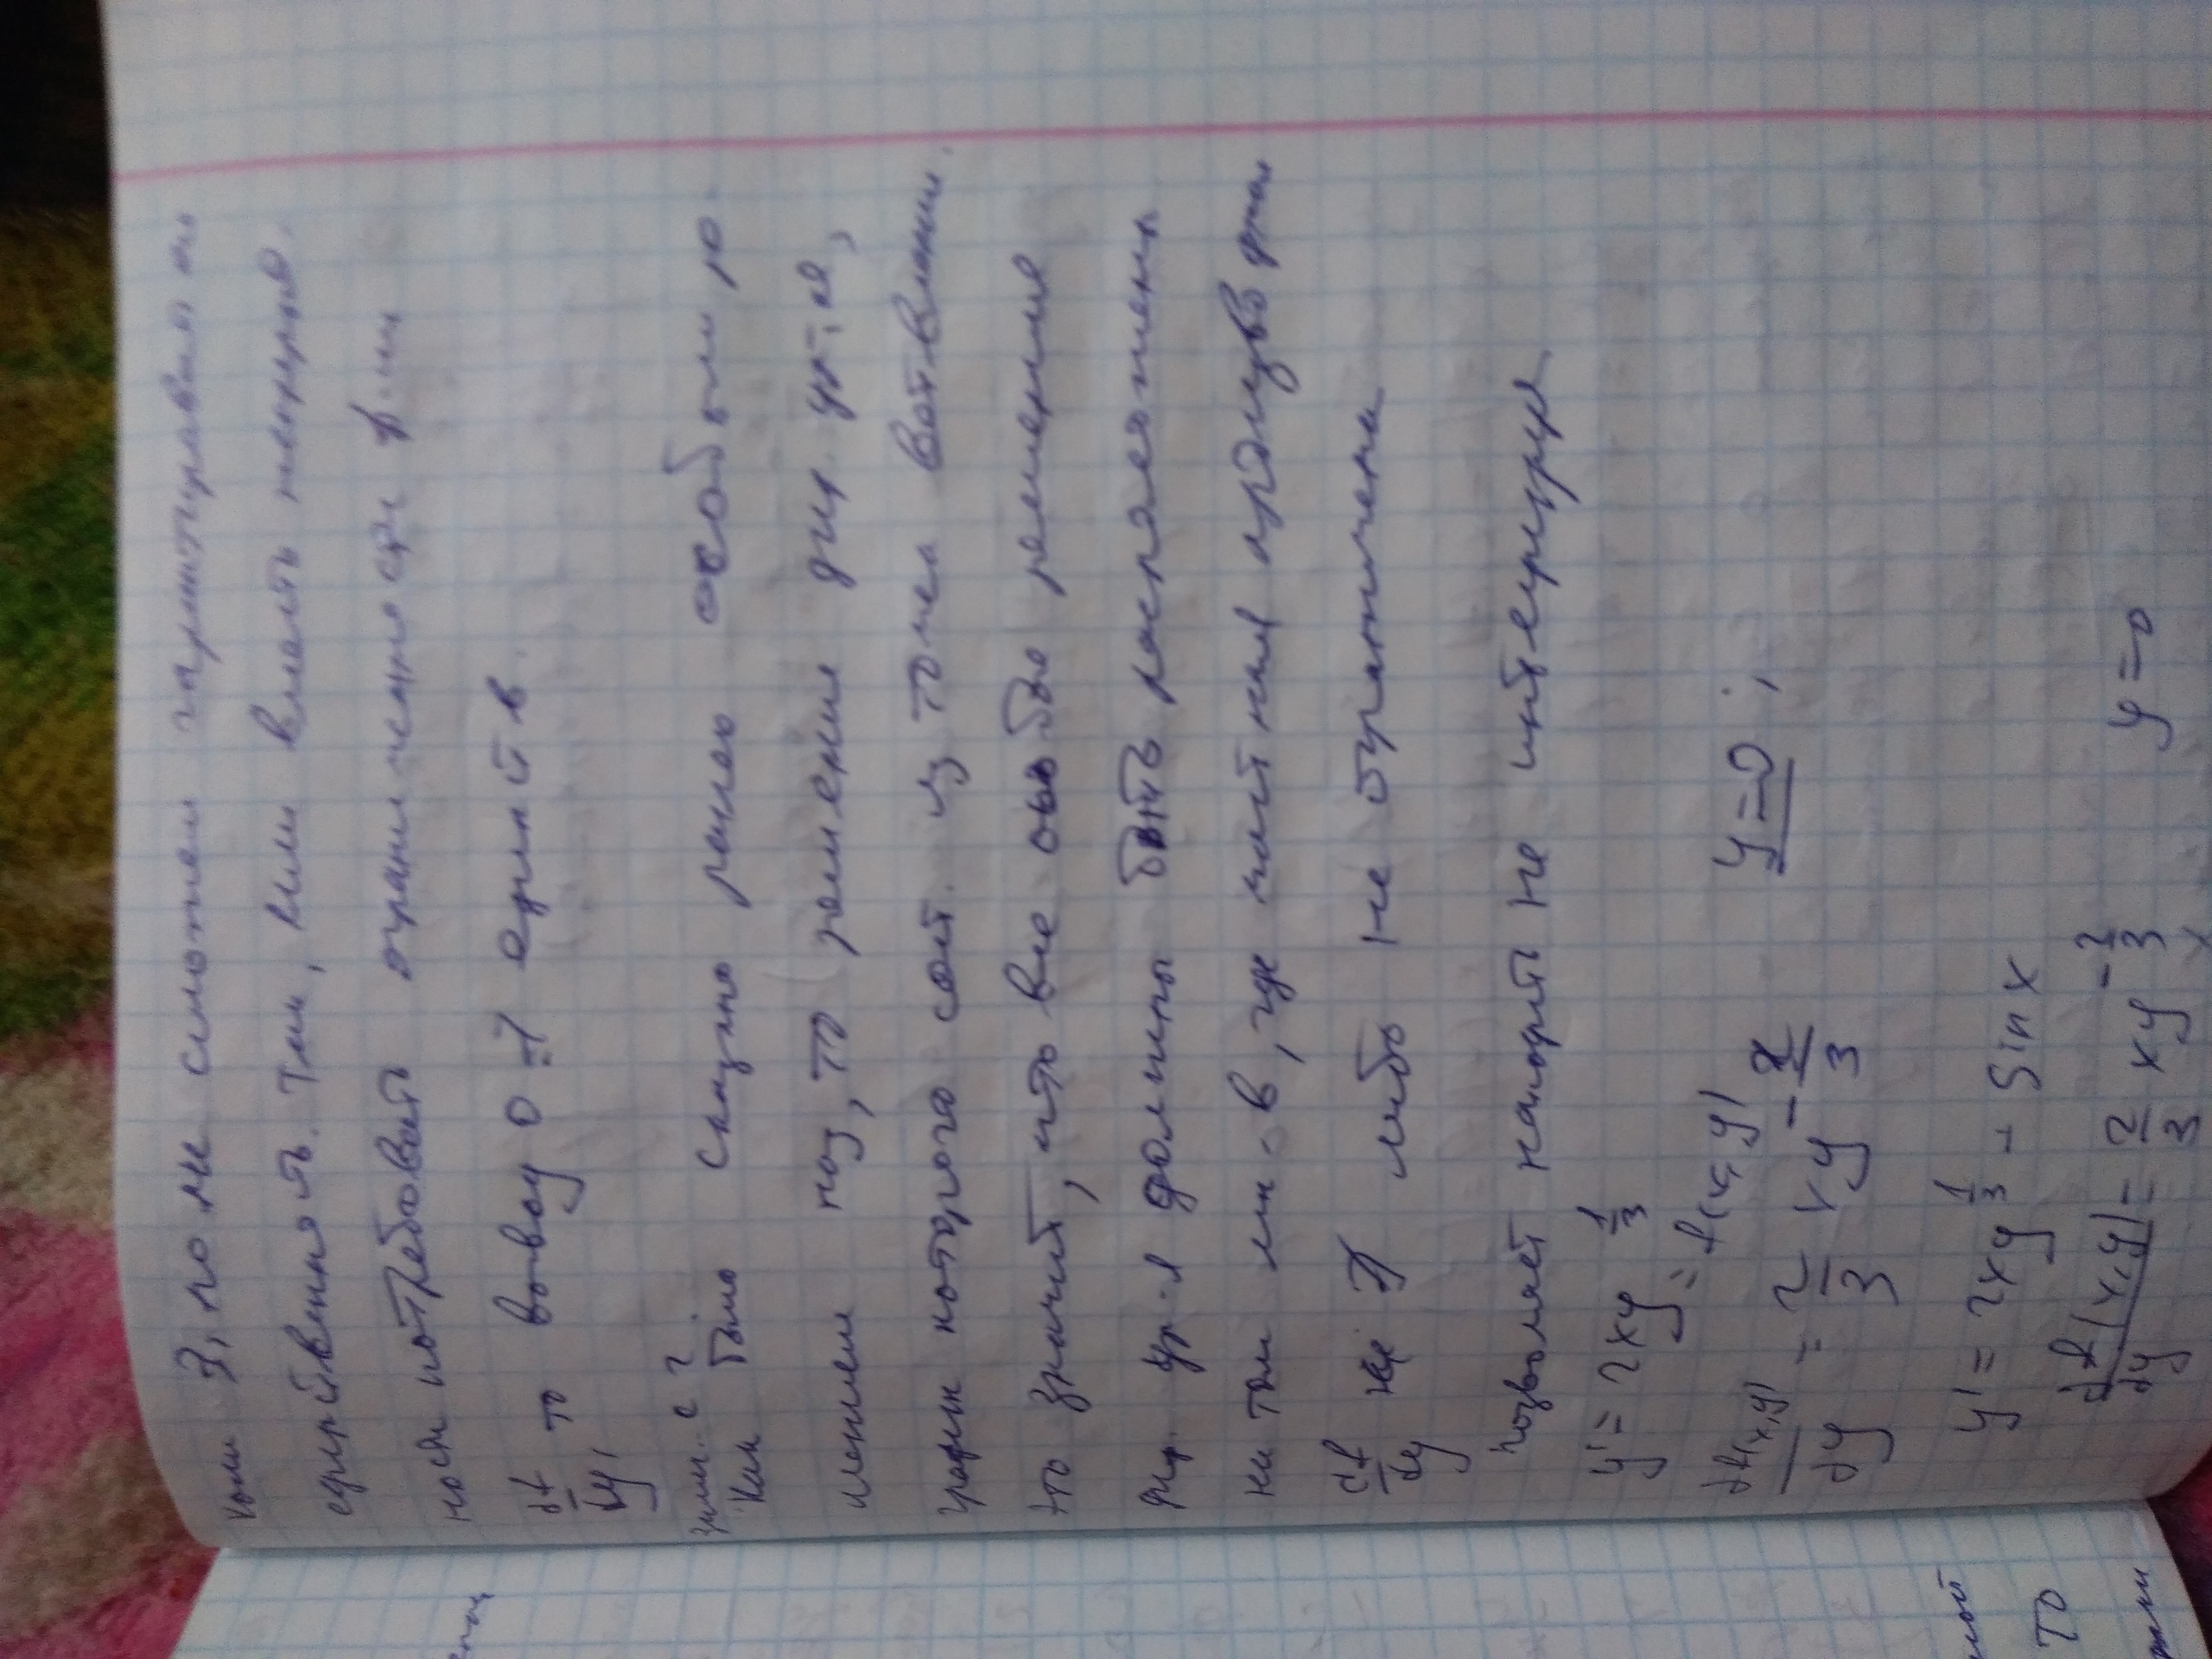 ∃, но не сможем гарантировать
единственность. Так, если вместо непрерыв.
ности потребовать ограниченности ф-ии
df/dy, то вывод о ∃ единств.
замеч. с 2.
Как было сказано ранее особым ре
шением наз, то решение диф. ур-я,
график которого сост. из точек ветвления.
это значит, что все особые решения
диф. ур-я должны быть расположены
на том мн-в, где частная производная
df/dy не ∃ либо не ограничена
позволяет находить не интегрируя
y' = 2xy^(1/3)
= f(x, y)
∂f(x,y)/∂y = 2/3 xy^(-2/3) y=0 ;
y' = 2xy^(1/3) - Sin x
∂f(x,y)/∂y = 2/3 xy^(-2/3) y=0
ной
то